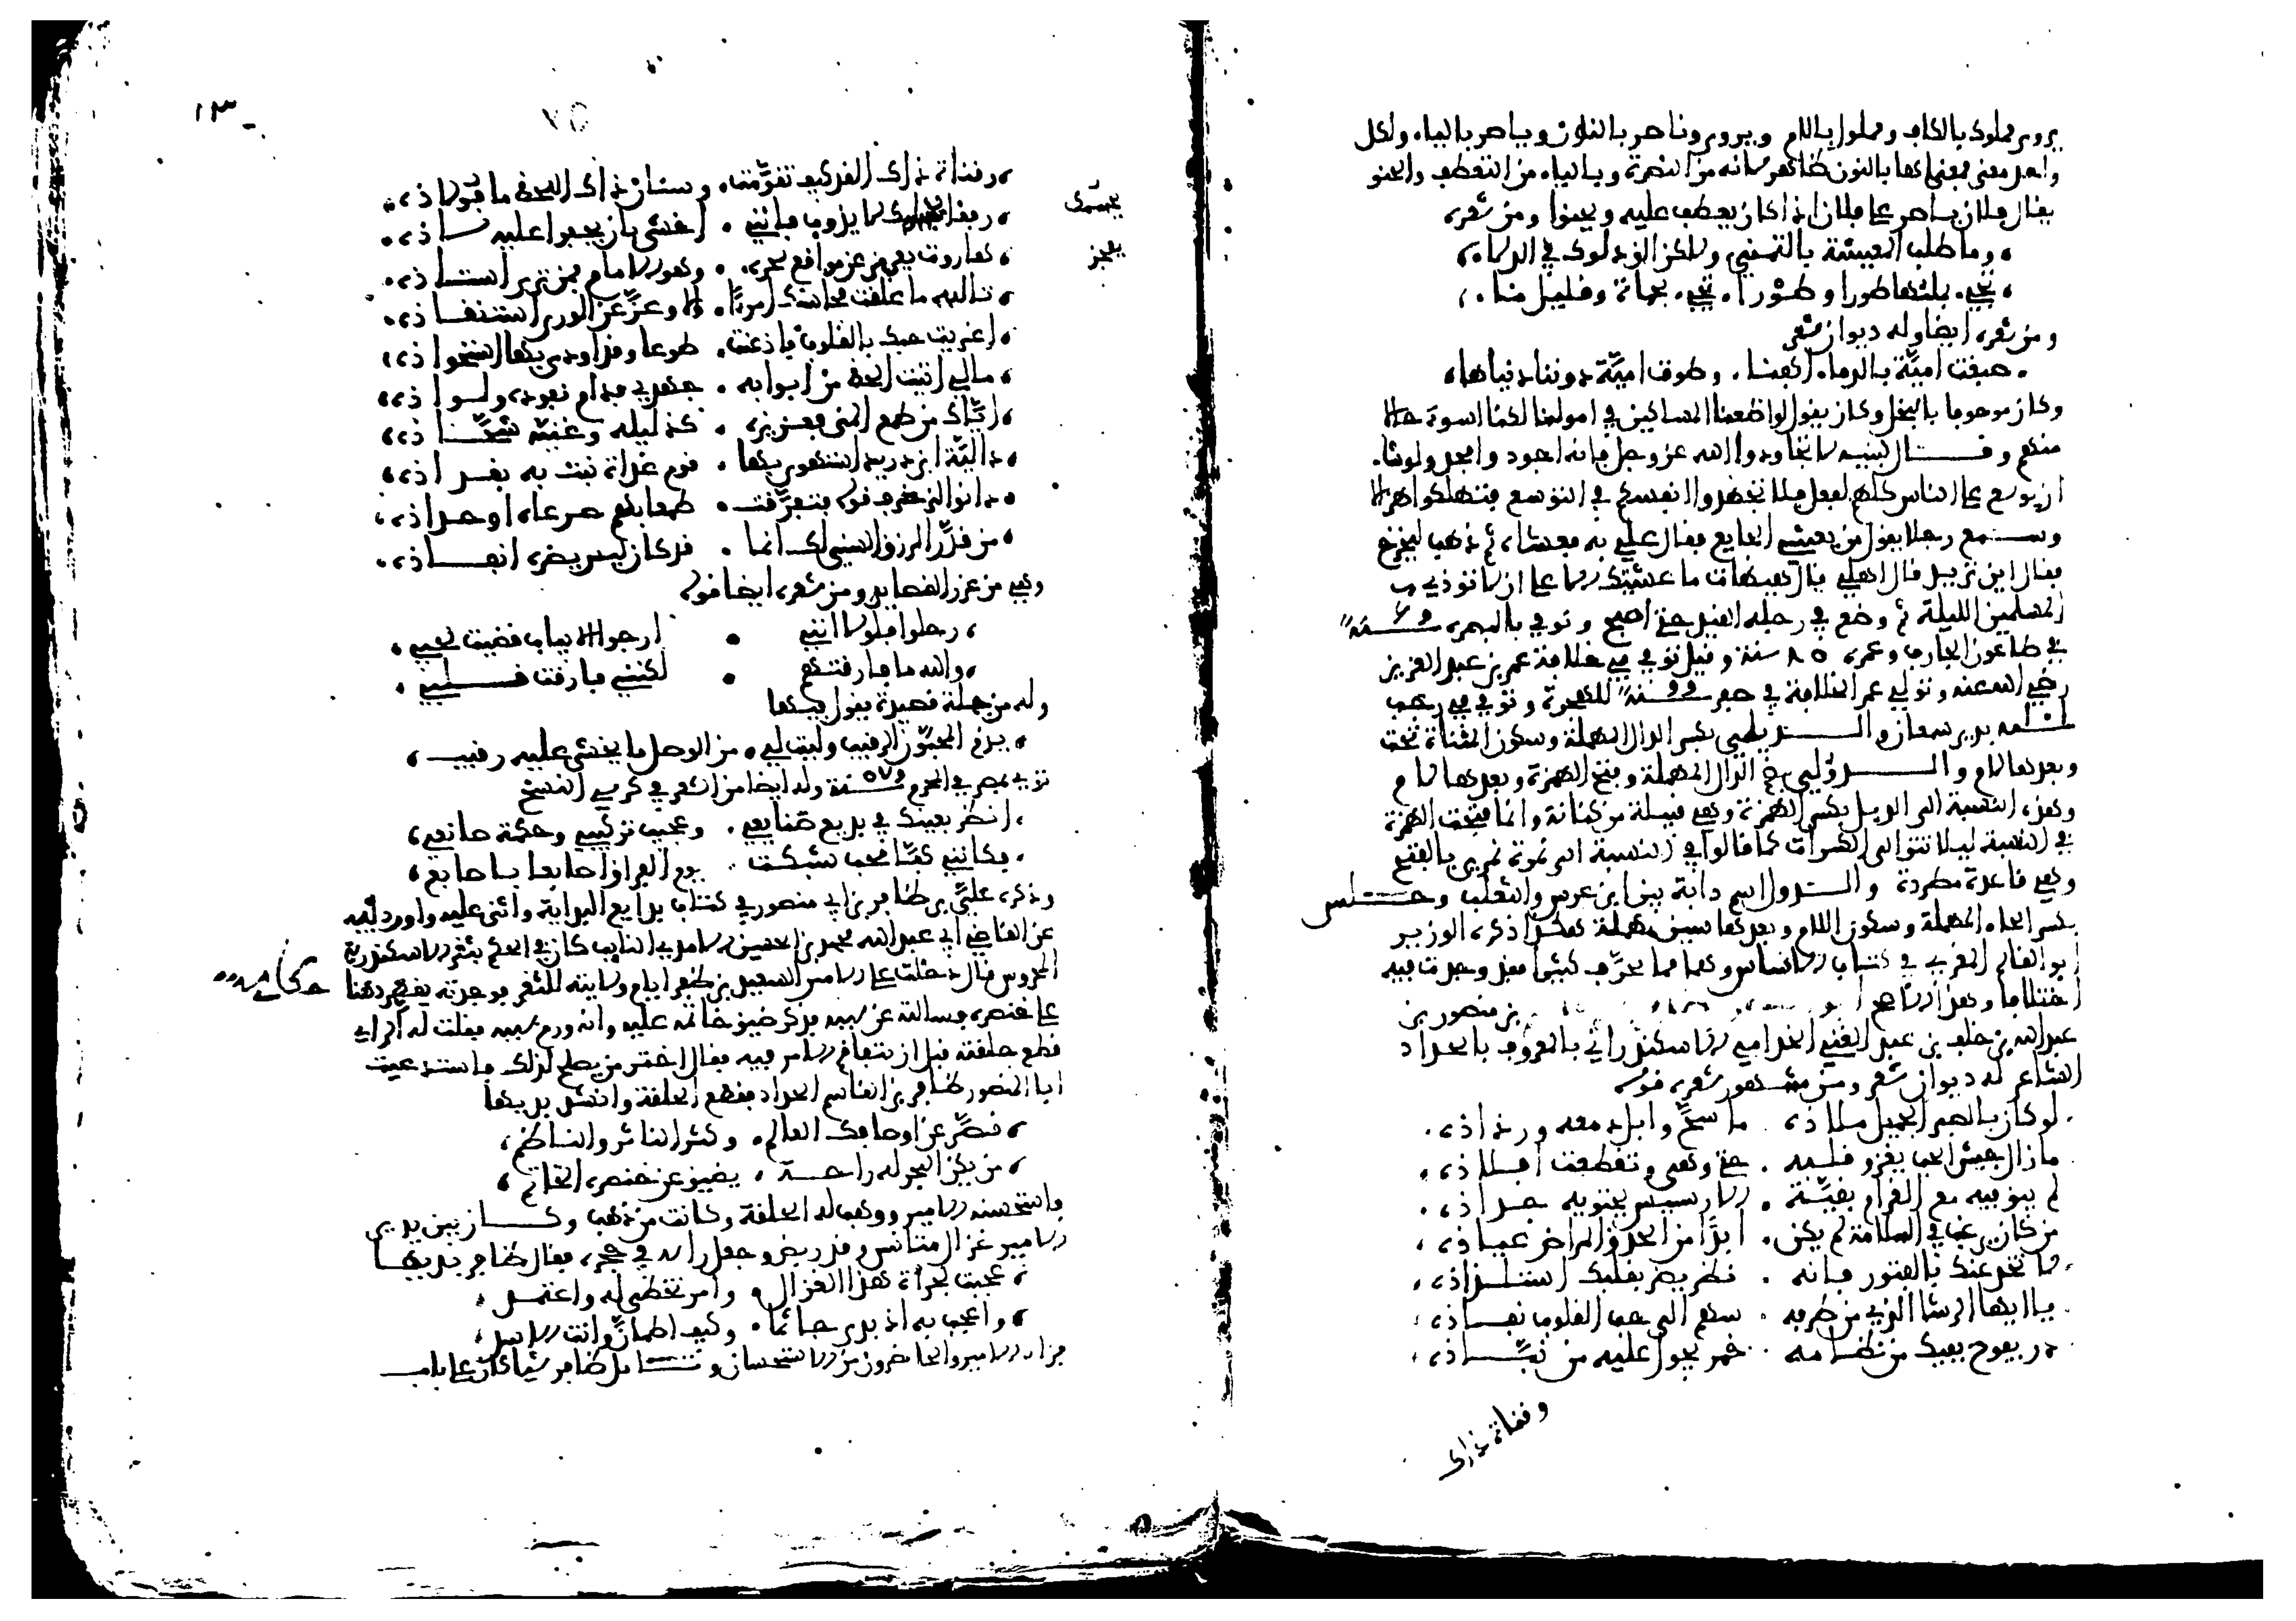 يروى مملوك بالكاف ومملول باللام ويروى وناصر بالنون وياصر بالياء ولكل
واحد معنى فمعناها بالنون ظاهر لانه من النصرة وبالياء من التعطف والحنو
يقال فلان ياصر على فلان اذا كان يعطف عليه ويحنوا ومن شعره
وما طلب المعيشة بالتمني ولاكن الق دلوك في الدلاء
تجيء بملئها طورا وطورا تجيء بحماة وقليل ماء
ومن شعره ايضا وله ديوان شعر
صبغت امية بالدماء اكفنا وطوت امية دوننا دنياها
وكان موصوفا بالبخل وكان يقول لو اطعنا المساكين في اموالنا لكنا اسوة حالا
منهم وقال لبنيه لا تجاودوا الله عز وجل فانه اجود وامجد ولو شاء
ان يوسع على الناس كلهم لفعل فلا تجهدوا انفسكم في التوسع فتهلكوا هزلا
وسمع رجلا يقول من يعشي الجايع فقال علي به فعشاه ثم ذهب ليخرج
فقال اين تريد قال اهلي قال هيهات ما عشيتك الا على ان لا توذي
المسلمين الليلة ثم وضع في رجله القيد حتى اصبح وتوفي بالبصرة سنة ٦٩
في طاعون الجارف وعمره ٨٥ سنة وقيل توفي في خلافة عمر بن عبد العزيز
رضي الله عنه وتولى عمر الخلافة في صفر سنة ٩٩ للهجرة وتوفي في رجب
بدير سمعان والديلي بكسر الدال المهملة وسكون المثناة تحت
وبعدها لام والدؤلي بضم الدال المهملة وفتح الهمزة وبعدها لام
وهذه النسبة الى الدول بكسر الهمزة وهي قبيلة من كنانة وانما فتحت الهمزة
في النسبة ليلا تتوالى الكسرات كما قالوا في النسبة الى نمرة نمري بالفتح
وهي قاعدة مطردة والدول اسم دابة بين ابن عرس والثعلب وحلس
بكسر الحاء المهملة وسكون اللام وبعدها سين مهملة هكذا ذكره الوزير
ابو القاسم المغربي في كتاب الايناس وهما مما يحرف كثيرا فقد وجدت فيه
اختلافا وهذا الاصح بن منصور بن
عبد الله بن خلف بن عبد الغني الجذامي الاسكندراني بالمعروف بالحداد
الشاعر له ديوان شعر ومن مشهور شعره قوله
لو كان بالصبر الجميل ملاذه ما سح وابل دمعه ورذاذه
ما زال جيش الحب يغزو قلبه حتى وهى وتقطعت افلاذه
لم يبق فيه مع الغرام بقية الا رسيس يحتويه جذاذه
من كان يرغب في السلامة لم يكن ابدا من الحدق المراض عياذه
لا تخدعنك بالفتور فانه نظر يضر بقلبك استلذاذه
يا ايها الرشا الذي من طرفه سهم الى حب القلوب نفاذه
در يفوح بفيك من نظامه خمر يجول عليه من نباذه
وقناة ذاك
١٣
وقناة ذاك القد كيف تقومت وسنان ذاك اللحظ ما فولاذه
رفقا بجسمك لا يذوب فانني اخشى بان يجفوا عليه لاذه
هاروت يعجز عن مواقع سحره وهو الامام فمن ترى استاذه
تالله ما علقت محاسنك امرءا الا وعز عن الورى استنقاذه
اغريت حبك بالقلوب فاذعنت طوعا وقد اودى بها استحواذه
مالي اتيت الحظ من ابوابه جهدي فدام نفوره ولواذه
اياك من طمع المنى فعزيزه كذليله وغنيه شحاذه
دالية ابن دريد استهوى بها قوم غداة نبت به بغداذه
دانوا لزخرف قوله فتفرقت طمعا بهم صرعاه او جذاذه
من قدر الرزق السني لك انما قد كان ليس يضره انفاذه
وهي من غرر القصايد ومن شعره ايضا قوله
رحلوا فلولا انني ارجوا الاياب قضيت نحبي
والله ما فارقتهم لكنني فارقت قلبي
وله من جملة قصيدة يقول فيها
يذم المحبون الرقيب وليت لي من الوصل ما يخشى عليه رقيب
توفي بمصر في المحرم سنة ٥٢٩ وله ايضا من الشعر في كرسي النسخ
انظر بعينك في بديع صنايعي وعجيب تركيبي وحكمة صانعي
فكانني كفا محب شبكت يوم الفراق اصابعا باصابع
وذكره علي بن ظافر بن ابي منصور في كتاب بدايع البداية واثنى عليه واورد فيه
عن القاضي ابي عبد الله محمد بن الحسين الامدي النايب كان في الحكم بثغر الاسكندرية
المحروس قال دخلت على الامير السعيد بن ظفر ايام ولايته للثغر فوجدته يقطر دهنا
على خنصره فسالته عن سببه فذكر ضيق خاتمه عليه وانه ورم بسببه فقلت له الراي
قطع حلقته قبل ان يتفاقم الامر فيه فقال اختر من يصلح لذلك فاستدعيت
ابا المنصور ظافر بن القاسم الحداد فقطع الحلقة وانشد بديها
قصر عن اوصافك العالم وكثر الناثر والناظم
من يكن البحر له راحة يضيق عن خنصره الخاتم
فاستحسنه الامير ووهب له الحلقة وكانت من ذهب وكان بين يدي
الامير غزال مستانس وقد ربض وجعل راسه في حجره فقال ظافر بديها
عجبت لجراة هذا الغزال وامر تخطى له واعتمد
واعجب به اذ بدى جاثما وكيف اطمأن وانت الاسد
فزاد الامير والحاضرون من الاستحسان وتامل ظافر شيا كان على باب
بجسمك
يعجز
حكاية